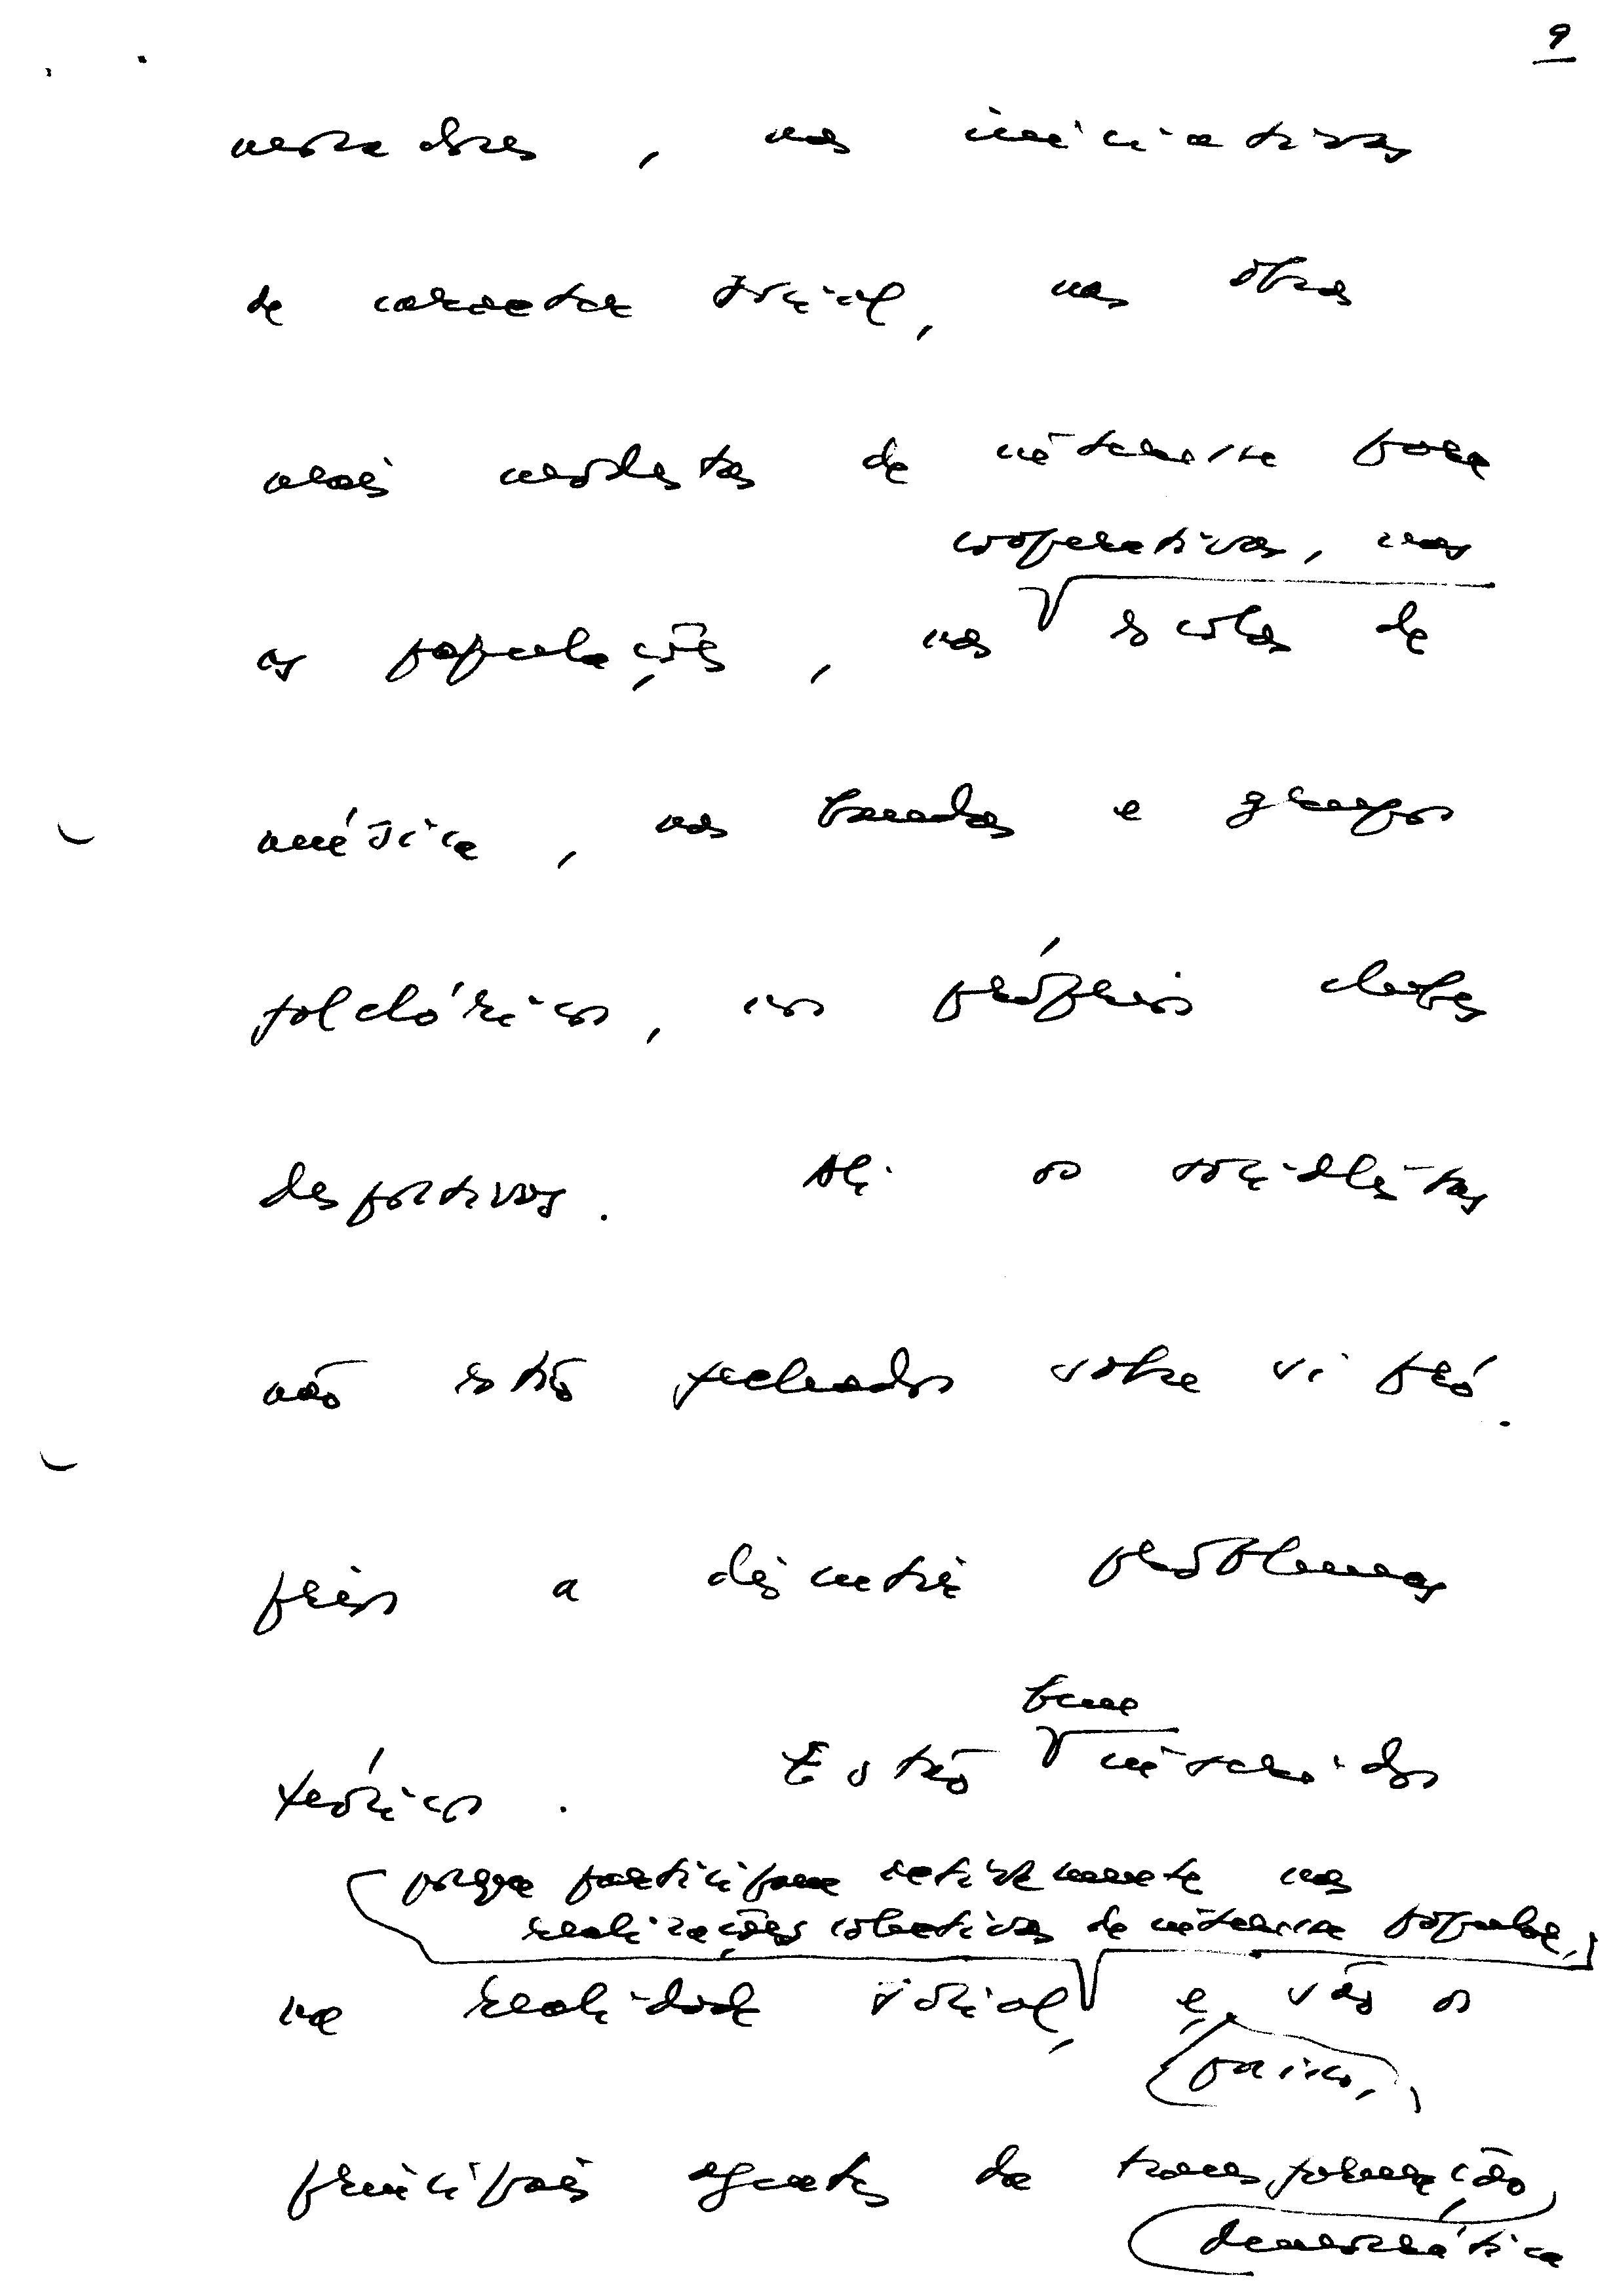 9
moradores, nas iniciativas
de carácter social, nas obras
mais modestas de interesse para
cooperativas, nas
as populações, nas escolas de
música, nas bandas e grupos
folclóricos, nos próprios clubes
desportivos. Ali os socialistas
não estão fechados sobre si pró-
prios a discutir problemas
bem
teóricos. Estão inseridos
porque participam activamente nas
realizações colectivas de interesse popular,
na realidade social, e são os
por isso,
principais agentes da transformação
democrática